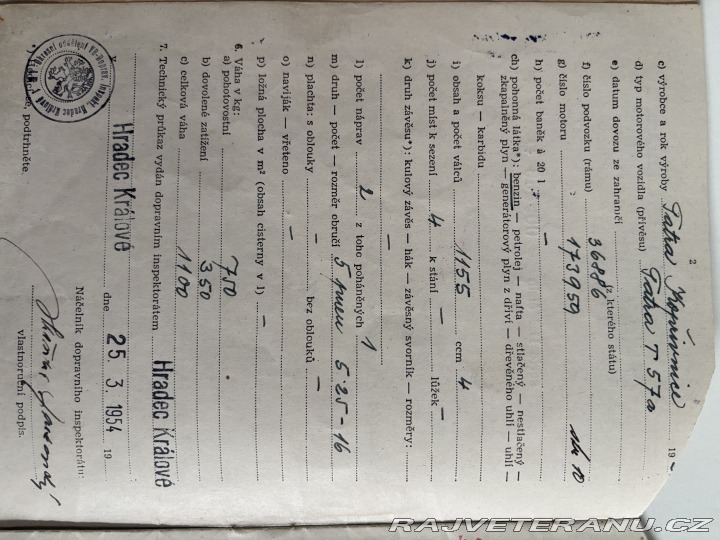 2
c) výrobce a rok výroby Tatra Kopřivnice 19 -
d) typ motorového vozidla (přívěsu) Tatra T 57a
e) datum dovozu ze zahraničí -
(z kterého státu)
f) číslo podvozku (rámu) 36886
g) číslo motoru 173959
h) počet baněk à 20 l : -
ch) pohonná látka*): benzin — petrolej — nafta — stlačený — nestlačený —
zkapalněný plyn — generátorový plyn z dříví — dřevěného uhlí — uhlí —
koksu — karbidu
i) obsah a počet válců 1155 ccm 4
j) počet míst k sezení 4 k stání — lůžek —
k) druh závěsu*): kulový závěs — hák — závěsný svorník — rozměry:
—
l) počet náprav 2 z toho poháněných 1
m) druh — počet — rozměr obručí 5 pneu 5·25-16
n) plachta: s oblouky — bez oblouků —
o) naviják — vřeteno —
p) ložná plocha v m² (obsah cisterny v l) —
6. Váha v kg:
a) pohotovostní 750
b) dovolené zatížení 350
c) celková váha 1100
7. Technický průkaz vydán dopravním inspektorátem Hradec Králové
Hradec Králové dne 25. 3. 1954 19
Náčelník dopravního inspektorátu:
vlastnoruční podpis.
podtrhněte.
RAJVETERANU.CZ